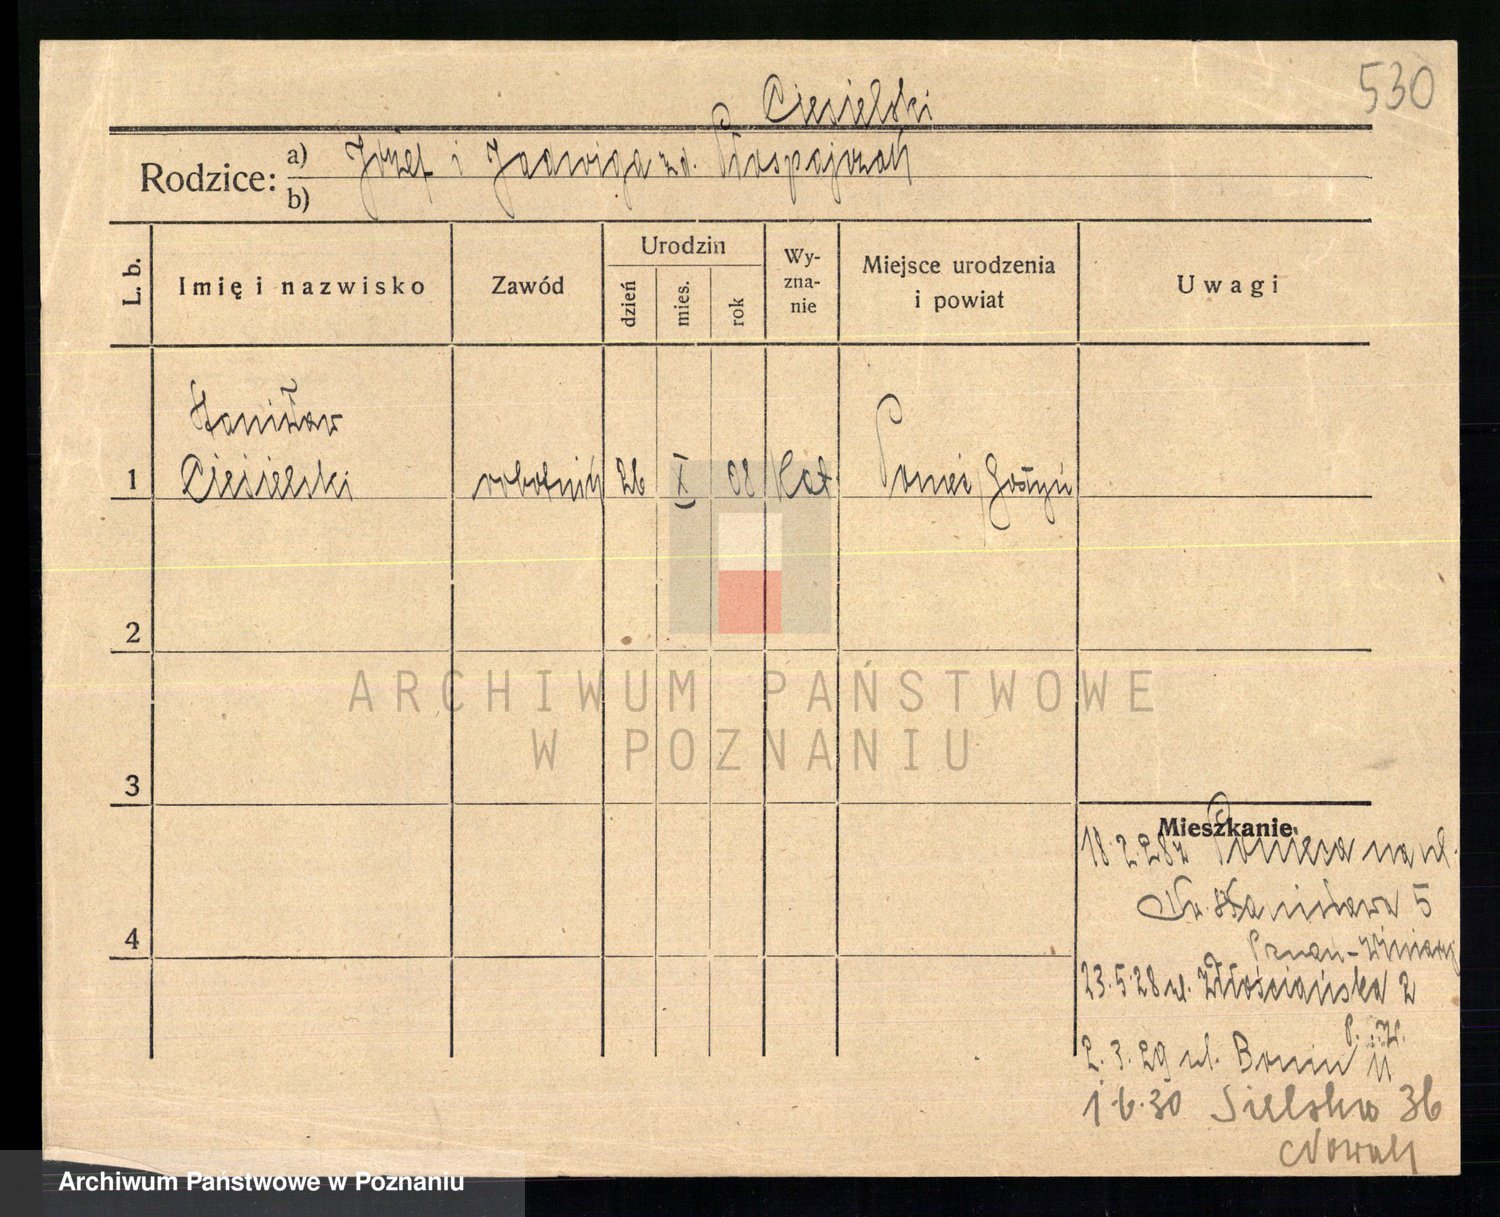 530
Ciesielski
Rodzice: a) Józef i Jadwiga zd.
b)
L. b.
Imię i nazwisko
Zawód
Urodzin
dzień
mies.
rok
Wy-
zna-
nie
Miejsce urodzenia
i powiat
Uwagi
Stanisław
1 Ciesielski robotnik 26 X 08 kat Poniec Gostyń
2
ARCHIWUM PAŃSTWOWE
W POZNANIU
3
Mieszkanie
18.2.28 z Ponieca na ul.
Św. Stanisława 5
4
Poznań-Winiary
23.5.28 ul. Włościańska 2
P. W.
2.3.29 ul. Bonin 11
1.6.30 Sielska 36
Nowak
Archiwum Państwowe w Poznaniu